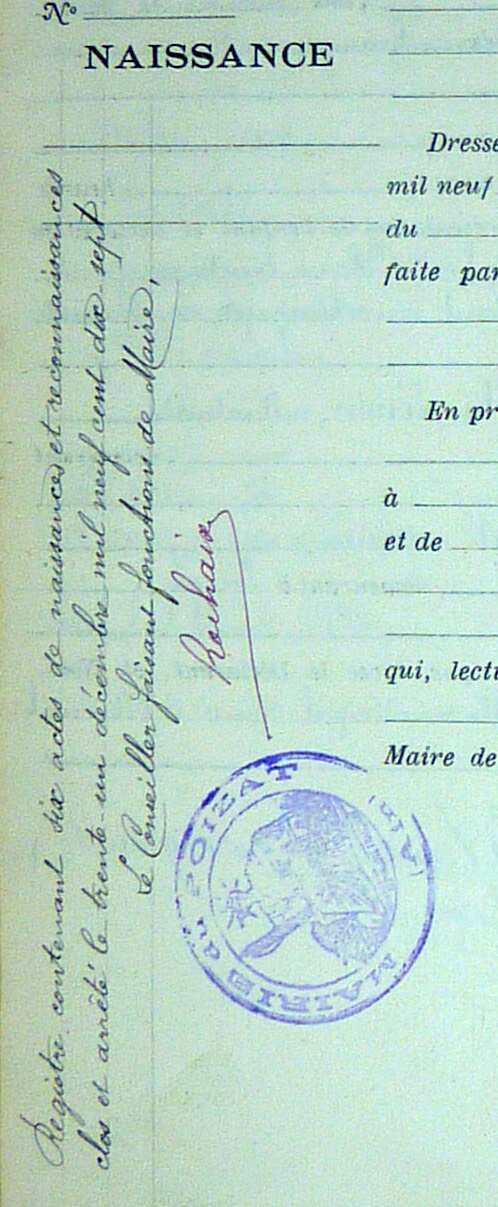 N°
NAISSANCE
Registre contenant six actes de naissances et reconnaissances
clos et arrêté le trente-un décembre mil neuf cent dix-sept.
Le Conseiller faisant fonctions de Maire,
MAIRIE du POIZAT
(AIN)
Dresse
mil neuf
du
faite par
En pr
à
et de
qui, lectu
Maire de